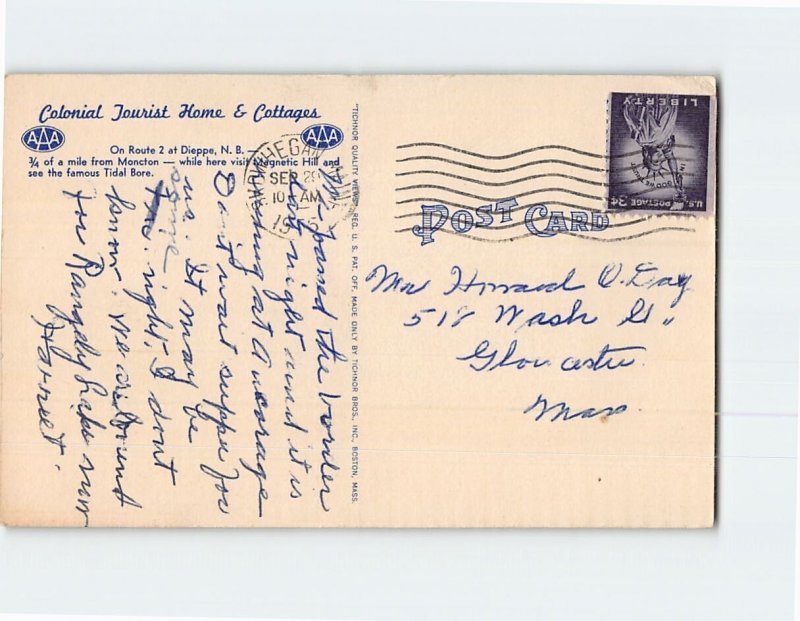 Colonial Tourist Home & Cottages
AAA
AAA
On Route 2 at Dieppe, N. B. —
¾ of a mile from Moncton — while here visit Magnetic Hill and
see the famous Tidal Bore.
We passed the border
last night and it is
snowing at Anchorage
Don't wait supper for
me. It may be
some
night, I don't
know. We are bound
for Rangely Lakes now
Harriet.
"TICHNOR QUALITY VIEWS," REG. U. S. PAT. OFF. MADE ONLY BY TICHNOR BROS., INC., BOSTON, MASS.
SKOWHEGAN
SEP 29
10 AM
POST CARD
LIBERTY
IN GOD WE TRUST
U.S. POSTAGE 3¢
Mrs Howard O. Day
518 Wash St.,
Gloucester
Mass.